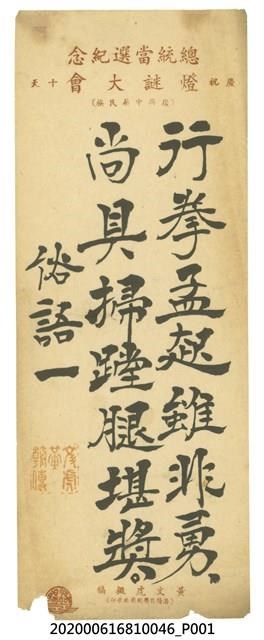 總統當選紀念
慶祝燈謎大會十天
(復興中華民族)
行拳孟起雖非勇、
尚具掃蹚腿堪獎。
俗語一
黃文虎擬稿
202000616810046_P001